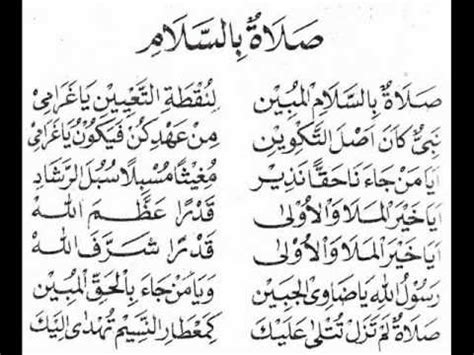 صَلَاةٌ بِالسَّلَامِ
صَلَاةٌ بِالسَّلَامِ الْمُبِينِ لِنُقْطَةِ التَّعْيِينِ يَا غَرَامِي
نَبِيٌّ كَانَ اَصْلَ التَّكْوِينِ مِنْ عَهْدِ كُنْ فَيَكُوْنُ يَا غَرَامِي
اَيَا مَنْ جَاءَ نَا حَقًّا نَذِيْر مُغِيْثًا مُسْبِلًا سُبُلَ الرَّشَادِ
اَيَا خَيْرَ الْمَلَا وَالْاُوْلَى قَدْرًا عَظَّمَ اللهُ
اَيَا خَيْرَ الْمَلَا وَالْاُوْلَى قَدْرًا شَرَّفَ اللهُ
رَسُوْلُ اللهِ يَا ضَاوِى الْجَبِيْن وَيَا مَنْ جَاءَ بِالْحَقِّ الْمُبِيْن
صَلَاةٌ لَمْ تَزَلْ تُتْلَى عَلَيْكَ كَمِعْطَارِ النَّسِيْمِ تُهْدَى اِلَيْكَ